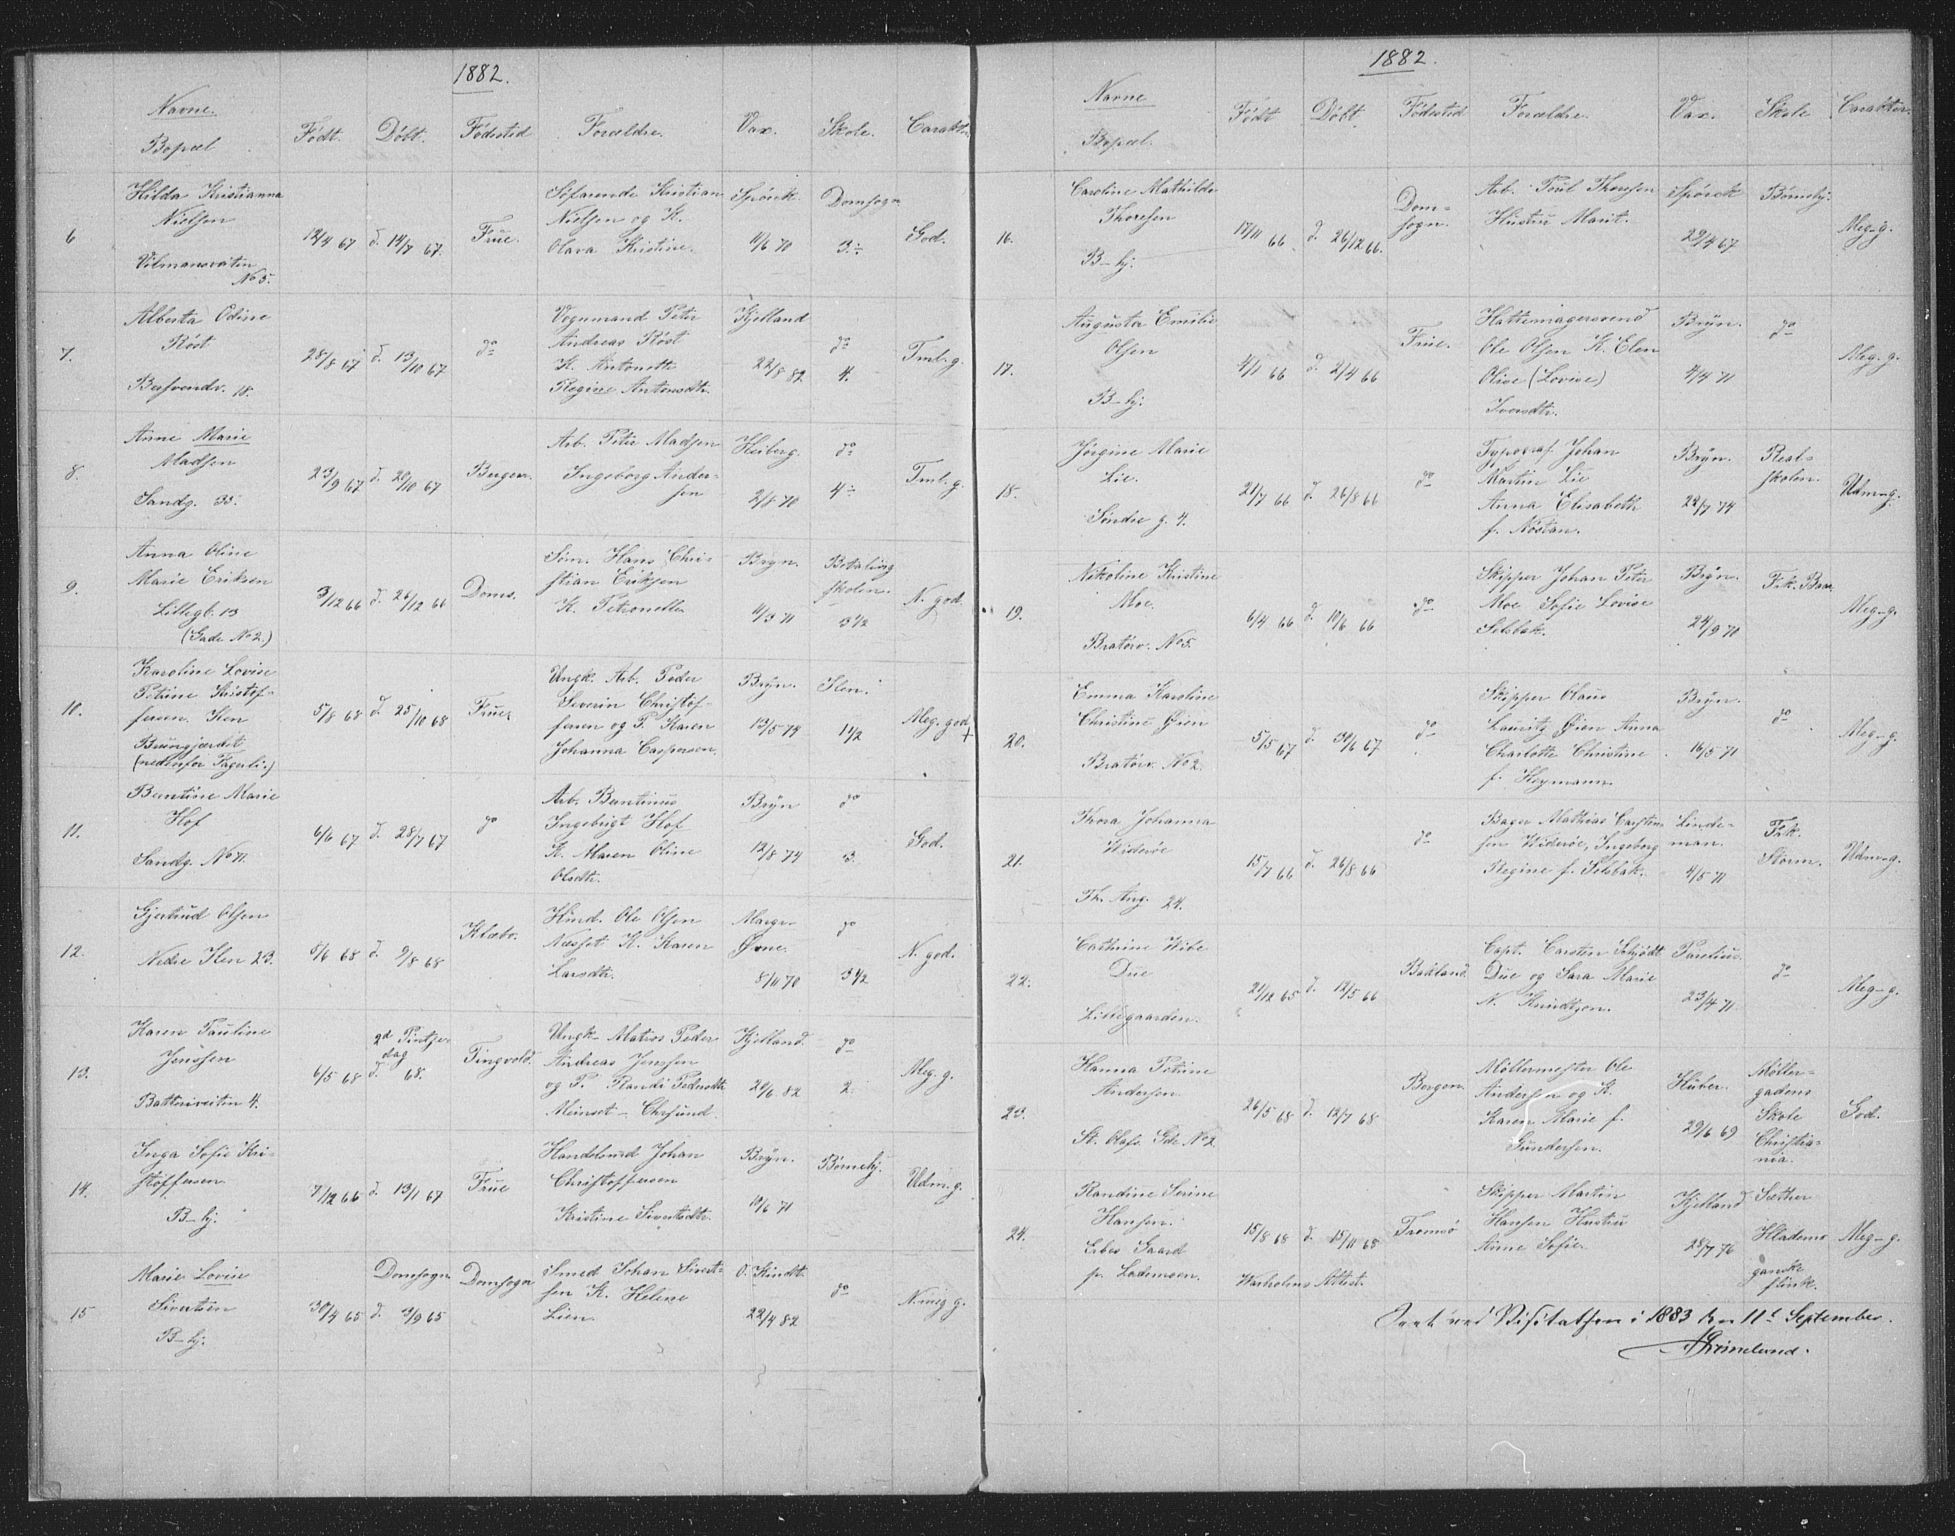 1882.
Navne.
Bopæl
Födt.
Döbt.
Födested
Forældre.
Vax.
Skole.
Carakt.
6
Hilda Kristianna
Nielsen
No 5.
12/4 67
d. 14/7 67.
Frue.
Söfarende Kristian
Nielsen og K.
Olava Kristine.
Spörck
4/6 70
Domsogn
3÷
God.
7.
Alberta Odine
Röst
Bersvendv. 18.
28/8 67
d. 13/10 67
do
Vognmand Peter
Andreas Röst
K. Antonette
Regine Antonsdtr.
Kjelland
22/8 82
do
4.
Tml. g.
8.
Anne Marie
Madsen
Sandg. 35.
23/9 67
d. 20/10 67
Bergen.
Arb. Peter Madsen
Ingeborg Ander-
sen
Heiberg.
2/8 70
do
4÷
Tml. g.
9.
Anna Oline
Marie Eriksen
Lillegb. 13
(Gade No 2.)
3/12 66
d. 26/12 66
Doms.
Söm. Hans Chri-
stian Eriksen
K. Petronelle
Bryn.
4/3 71
Betaling
skolen.
3 1/2
N. god
10.
Karoline Lovise
Petrine Kristof-
fersen. Ilen
(nedenfor Fagerli.)
5/8 68
d. 25/10 68
Frue
Ungk. Arb. Peder
Severin Christof-
fersen og P. Karen
Johanna Caspersen.
Bryn.
13/5 74
Ilen.
1 1/2
Meg. god
+
11.
Berntine Marie
Hof
Sandg. No 71.
6/6 67
d. 28/7 67
do
Arb. Berntinus
Ingebrigt Hof
K. Maren Oline
Olsdtr.
Bryn
12/8 74
do
3.
God.
12.
Gjertrud Olsen
Nedre Ilen 23.
5/6 68
d. 9/8 68
Klæbo.
Husd. Ole Olsen
Næsset K. Karen
Larsdtr.
8/11 70
do
3 1/2
N. god.
13.
Karen Pauline
Jenssen
Batteriveiten 4.
6/5 68
2d Pintse-
dag
d. 68.
Tingvold.
Ungk. Matros Peder
Andreas Jenssen
og P. Randi Pedersdtr
Meinset - Chrsund.
Kjelland.
20/6 82
do
2.
Meg. g.
14.
Inga Sofie Kri-
stoffersen
B-hj.
7/12 66
d. 13/1 67
Frue
Handelsmd Johan
Christoffersen
Kristine Sivertsdtr.
Bryn.
19/6 71
Börnehj.
Udm. g.
15
Marie Lovise
Sivertsen
B-hj.
30/4 65
Domsogn
d. 3/9 65
Domsogn
Smed Johan Sivert-
sen K. Helene
Lien.
O. Kindt
22/4 82
do
N. meg g.
1882.
Navne
Bopæl.
Födt
Döbt.
Födested
Forældre.
Vax.
Skole
Carakter.
16.
Caroline Mathilde
Thoresen
B-hj.
17/11 66
d. 26/12 66.
Dom-
sogn.
Arb. Poul Thoresen
Hustru Marit.
Spörck
29/4 67
Börnehj.
Meg-g.
17.
Augusta Emilie
Olsen
B-hj.
4/1 66
d. 2/4 66
Frue.
Hattemagersvend
Ole Olsen K. Elen
Olive (Lovise)
Iversdtr.
Bryn.
4/4 71
do
Meg. g.
18.
Jörgine Marie
Lie.
Söndre g. 4.
21/7 66
d. 26/8 66
do
Typograf Johan
Martin Lie
Anna Elisabeth
f. Nöstan.
Bryn.
22/7 74
Real-
skolen.
Udm-g.
19.
Nikoline Kristine
Moe.
Bratörv. No 5.
6/4 66
d. 10/6 66
do
Skipper Johan Peter
Moe Sofie Lovise
Selsbak.
Bryn.
24/9 70
Meg-g.
20.
Emma Karoline
Christine Öien
Bratörv. No 2.
5/5 67
d. 30/6 67
do
Skipper Olaus
Lauritz Öien Anna
Charlotte Christine
f. Heymann.
Bryn.
16/5 71
do
Meg-g.
21.
Thora Johanna
Wideröe
Th. Ang. 24.
15/7 66
d. 26/8 66
do
Bager Mathias Carsten-
sen Wideröe, Ingeborg
Regine f. Selsbak.
Linde-
man.
4/5 71
Frk.
Storm.
Udm-g.
22.
Cathrine Wibe
Due
Lillegaarden.
21/12 65
d. 12/5 66
Bakland
Capt. Carsten Schjödt
Due og Sara Marie
N. Knudtzon.
Parelius.
23/4 71
do
Meg-g.
23.
Hanna Petrine
Andersen
St. Olafs Gde No 2
26/5 68
d. 12/7 68
Bergen.
Möllermester Ole
Andersen og K.
Karen Marie f.
Gundersen.
Huber.
29/6 69
Möller-
gadens
Skole
Christia-
nia.
God.
24.
Randine Serine
Hansen.
Erbes Gaard
p. Lademoen.
15/8 68
d. 15/11 68
Warholms Attest.
Tromsö
Skipper Martin
Hansen Hustru
Anne Sofie.
Kjelland
28/7 76
Sæther
Hladems
ganske
flink.
Meg-g.
Seet ved Visitatsen i 1883 den 11t September.
Grimelund.